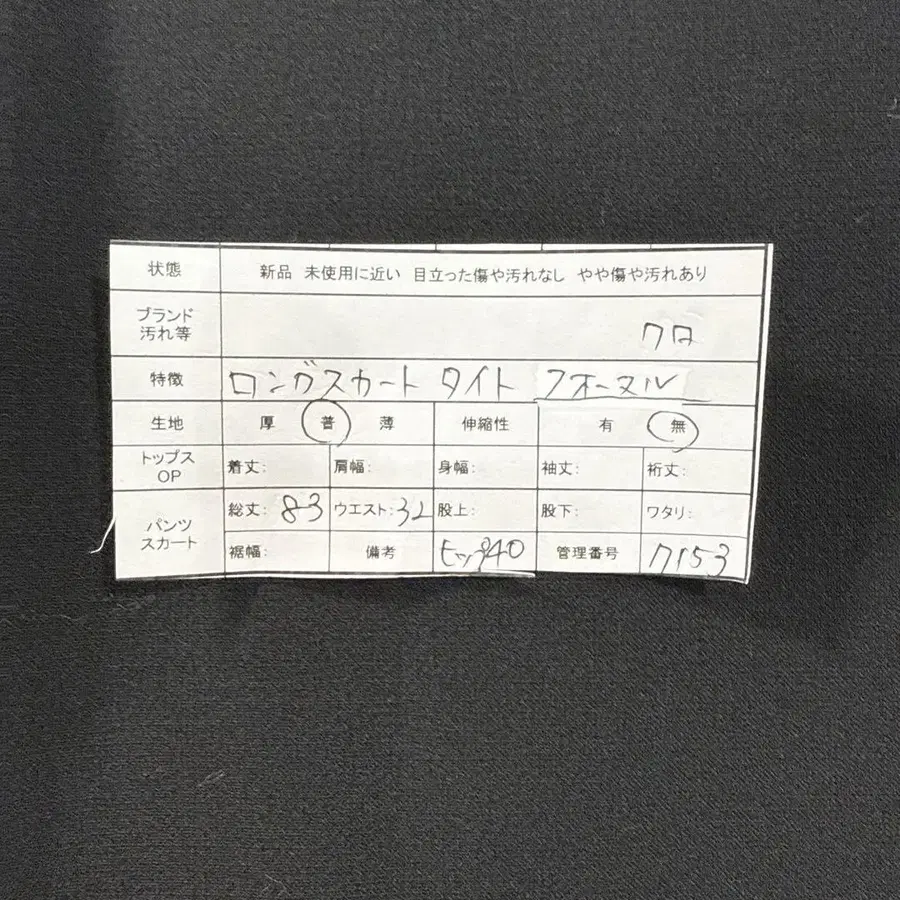 状態 新品 未使用に近い 目立った傷や汚れなし やや傷や汚れあり
ブランド
汚れ等 クロ
特徴 ロングスカート タイト フォーマル
生地 厚 普 薄 伸縮性 有 無
トップス
OP 着丈: 肩幅: 身幅: 袖丈: 裄丈:
パンツ
スカート 総丈: 83 ウエスト: 32 股上: 股下: ワタリ:
裾幅: 備考 ヒップ40 管理番号 7153